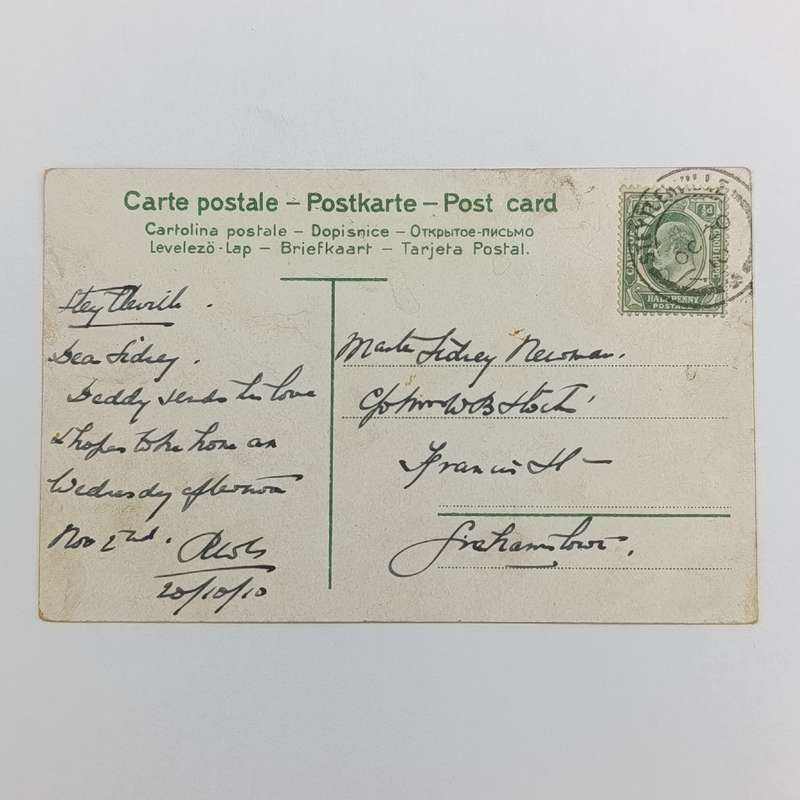 Carte postale – Postkarte – Post card
Cartolina postale – Dopisnice – Открытое-письмо
Levelező-Lap – Briefkaart – Tarjeta Postal.
HALF PENNY
POSTAGE
Steytlerville.
Dear Sidney.
Daddy sends his love
& hopes to be home on
Wednesday afternoon
Nov 2nd.
20/10/10
Master Sidney Newman.
C/o Mrs W B Stocks
Francis St –
Grahamstown.